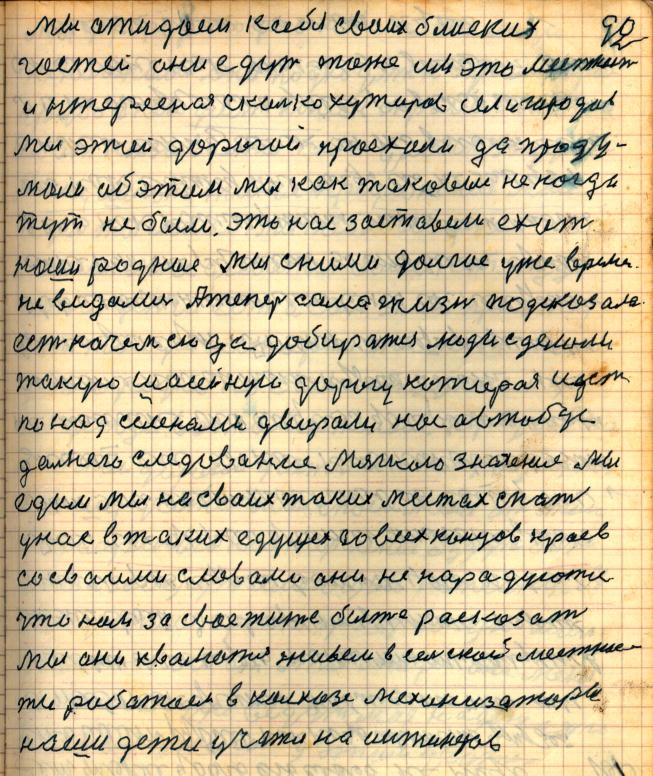 мы ожидаем к себя своих блиских 90
гостей они едут тоже им это местност
интересная сколко хуторов сел и городов
мы этой дорогой проехали да проду-
мали об этим мы как таковые не когда
тут не были. Это нас заставели ехат
наши родные мы сними долгое уже время
не видалися Атепер сама жизн подсказала
ест начем сюда добиратся люди сделали
такую шасейную дорогу которая идет
по над селенами дворами нас автобус
далнего следование мягкого значение мы
едим мы на своих таких местах спат
унас в таких едущех со всех концов краев
со своими словами они не нарадуются
что нам за свое жите бытье расказат
мы они хвалятся живем в селской местнос-
ти работаем в колхозе механизаторы
наши дети учатся на